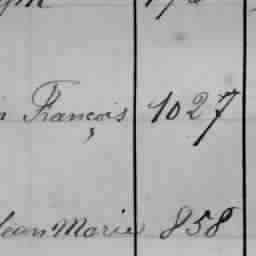 François 1027
Jean Marie 858